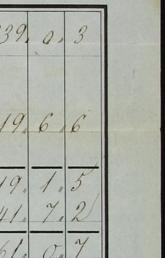 39. 0. 3
19. 6. 6
19. 1. 5
41. 7. 2
61. 0. 7